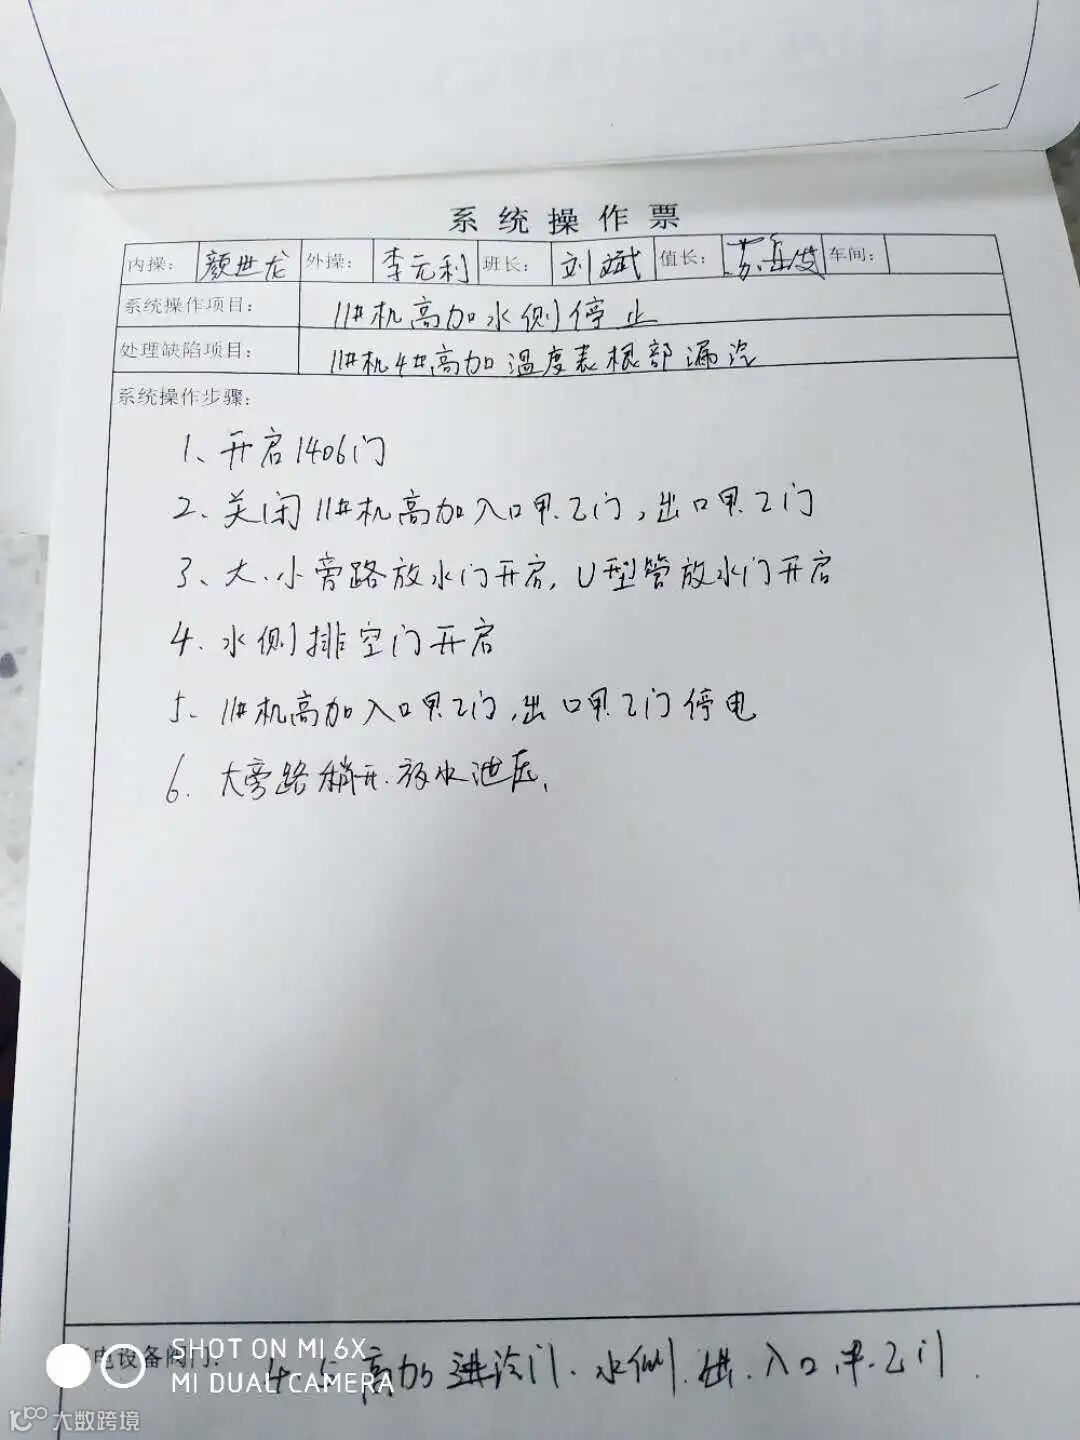 系统操作票
内操： 颜世龙 外操： 李元利 班长： 刘斌 值长： 苏岳 车间：
系统操作项目： 11#机高加水侧停止
处理缺陷项目： 11#机4#高加温度表根部漏汽
系统操作步骤：
1、开启1406门
2、关闭11#机高加入口甲乙门，出口甲乙门
3、大、小旁路放水门开启，U型管放水门开启
4、水侧排空门开启
5、11#机高加入口甲乙门，出口甲乙门停电
6、大旁路稍开、放水泄压、
电设备阀门： 4、5高加进汽门、水侧、出、入口甲、乙门
SHOT ON MI 6X
MI DUAL CAMERA
大数跨境